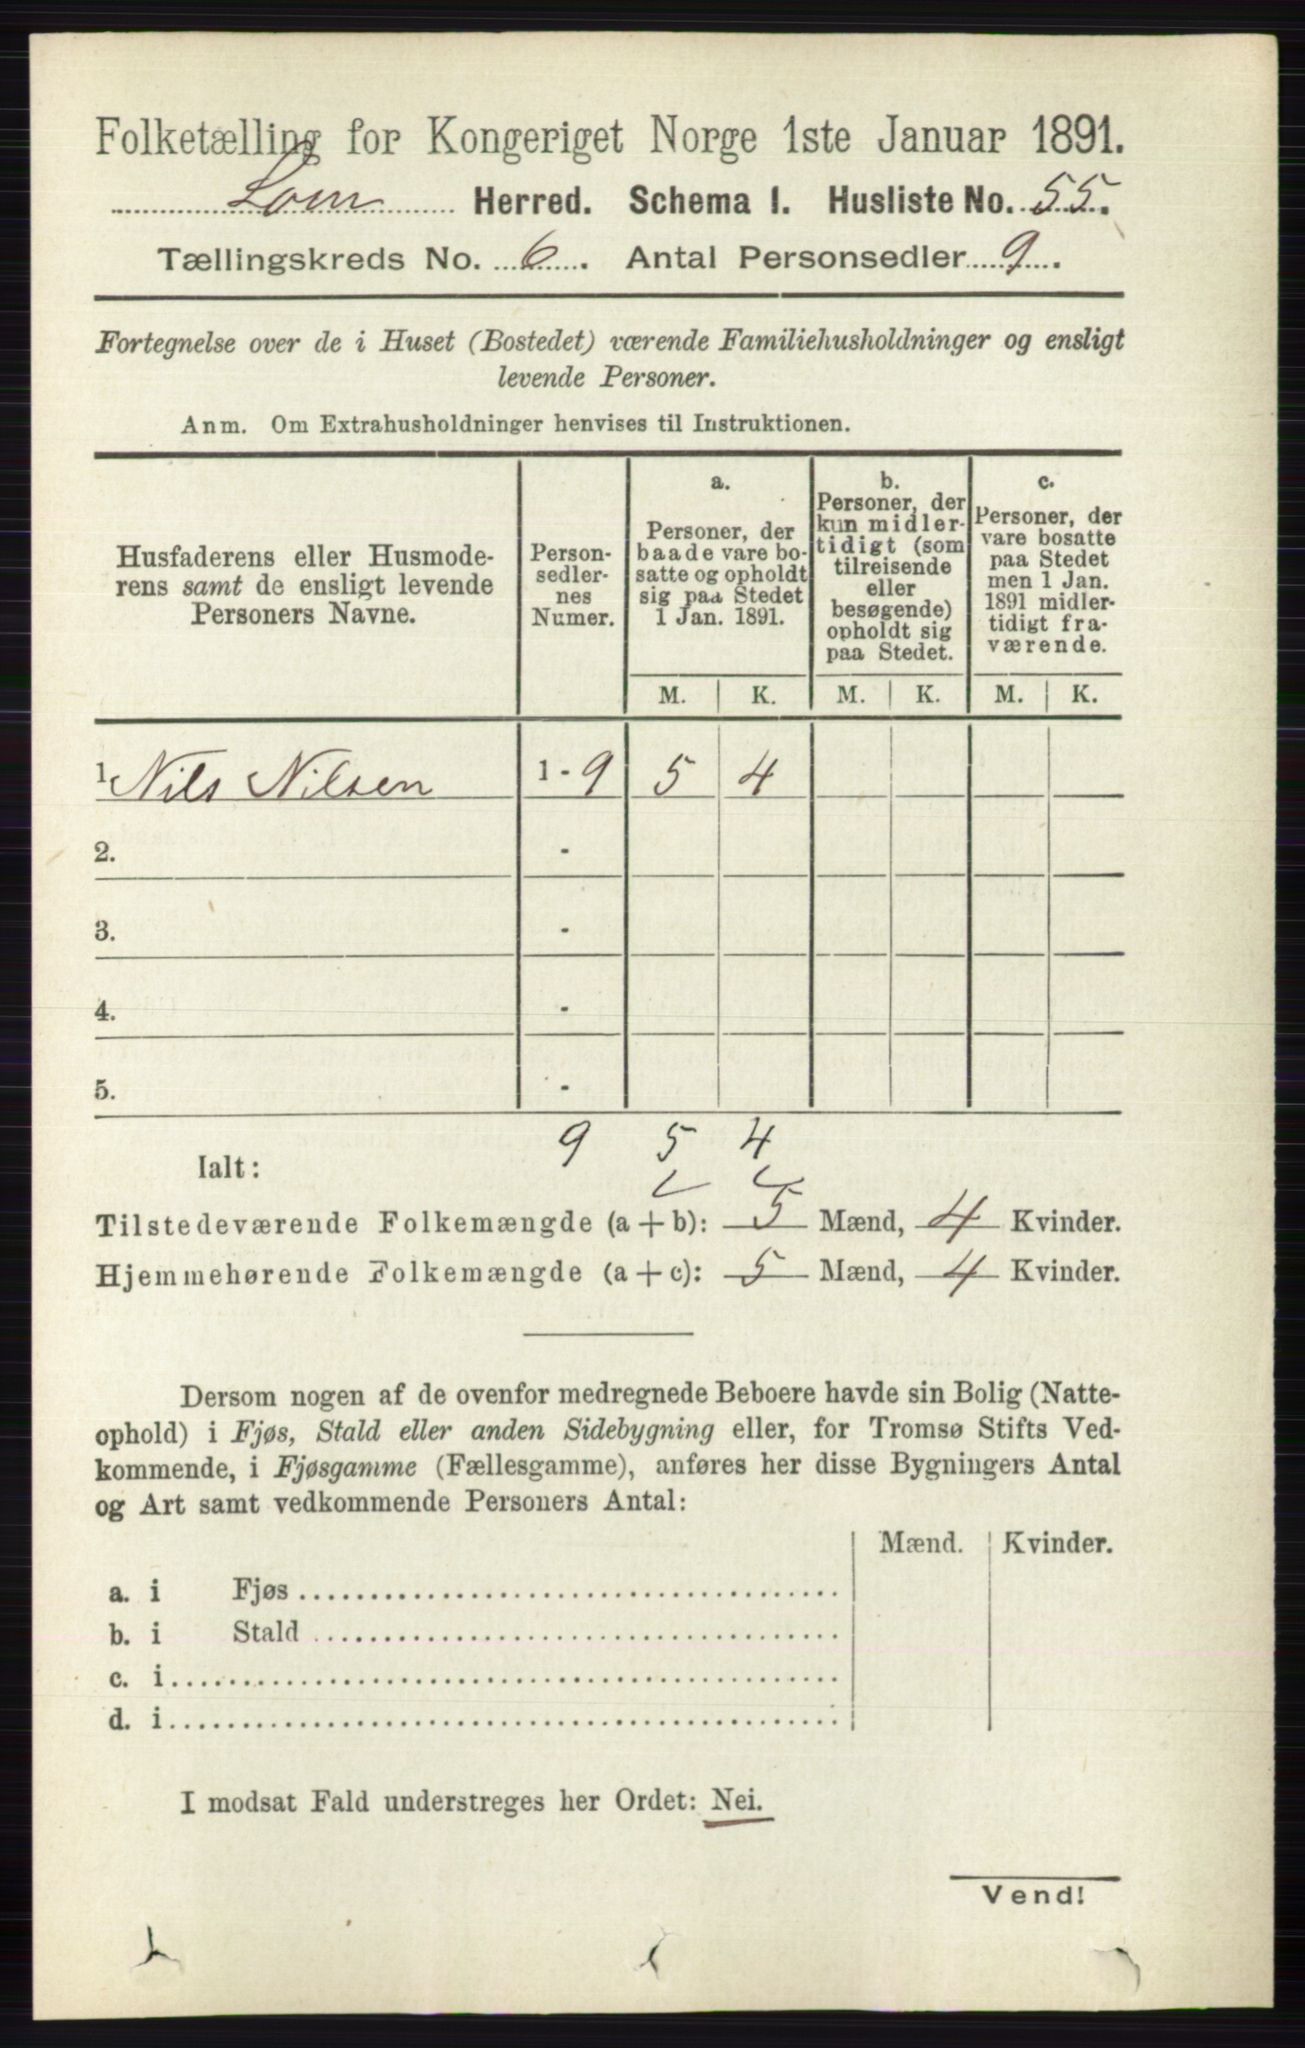 Folketælling for Kongeriget Norge 1ste Januar 1891.
Lom Herred. Schema I. Husliste No. 55.
Tællingskreds No. 6. Antal Personsedler 9.
Fortegnelse over de i Huset (Bostedet) værende Familiehusholdninger og ensligt
levende Personer.
Anm. Om Extrahusholdninger henvises til Instruktionen.
Husfaderens eller Husmode-
rens samt de ensligt levende
Personers Navne.
Person-
sedler-
nes
Numer.
a.
Personer, der
baade vare bo-
satte og opholdt
sig paa Stedet
1 Jan. 1891.
b.
Personer, der
kun midler-
tidigt (som
tilreisende
eller
besøgende)
opholdt sig
paa Stedet.
c.
Personer, der
vare bosatte
paa Stedet
men 1 Jan.
1891 midler-
tidigt fra-
værende.
M. K. M. K. M. K.
1. Nils Nilsen 1 - 9 5 4
2. -
3. -
4. -
5. -
9 5 4
Ialt:
Tilstedeværende Folkemængde (a + b): 5 Mænd, 4 Kvinder.
Hjemmehørende Folkemængde (a + c): 5 Mænd, 4 Kvinder.
Dersom nogen af de ovenfor medregnede Beboere havde sin Bolig (Natte-
ophold) i Fjøs, Stald eller anden Sidebygning eller, for Tromsø Stifts Ved-
kommende, i Fjøsgamme (Fællesgamme), anføres her disse Bygningers Antal
og Art samt vedkommende Personers Antal:
Mænd. Kvinder.
a. i Fjøs
b. i Stald
c. i
d. i
I modsat Fald understreges her Ordet: Nei.
Vend!